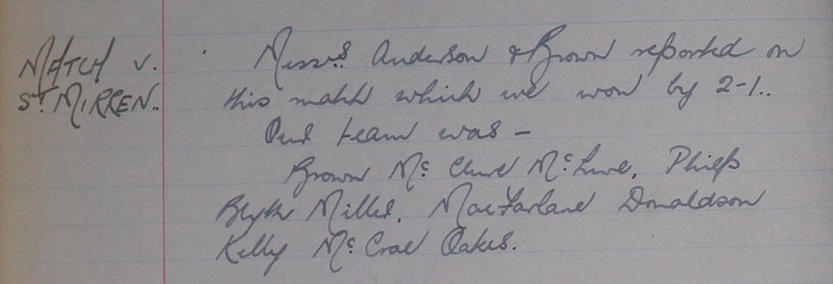 MATCH v.
ST MIRREN..
Messrs Anderson & Brown reported on
this match which we won by 2-1..
Our team was –
Brown Mc Clure McLure, Philp
Blyth Miller, MacFarlane Donaldson
Kelly McCrae Oakes.